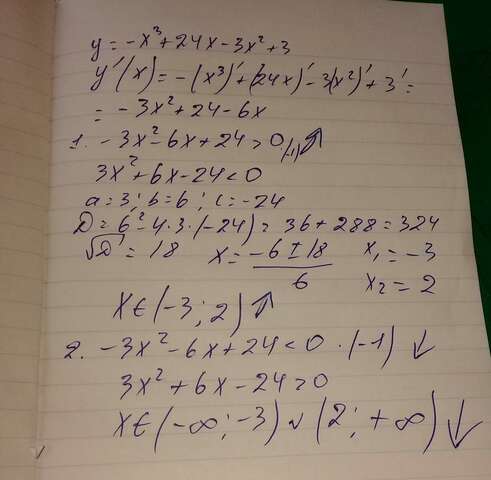 y = -x³ + 24x - 3x² + 3
y'(x) = -(x³)' + (24x)' - 3(x²)' + 3' =
= -3x² + 24 - 6x
1. -3x² - 6x + 24 > 0 /(-1) ↑
3x² + 6x - 24 < 0
a = 3; b = 6; c = -24
D = 6² - 4·3·(-24) = 36 + 288 = 324
√D = 18 x = (-6 ± 18)/6 x₁ = -3
x₂ = 2
x ∈ (-3; 2) ↑
2. -3x² - 6x + 24 < 0 ·(-1) ↓
3x² + 6x - 24 > 0
x ∈ (-∞; -3) ∪ (2; +∞) ↓